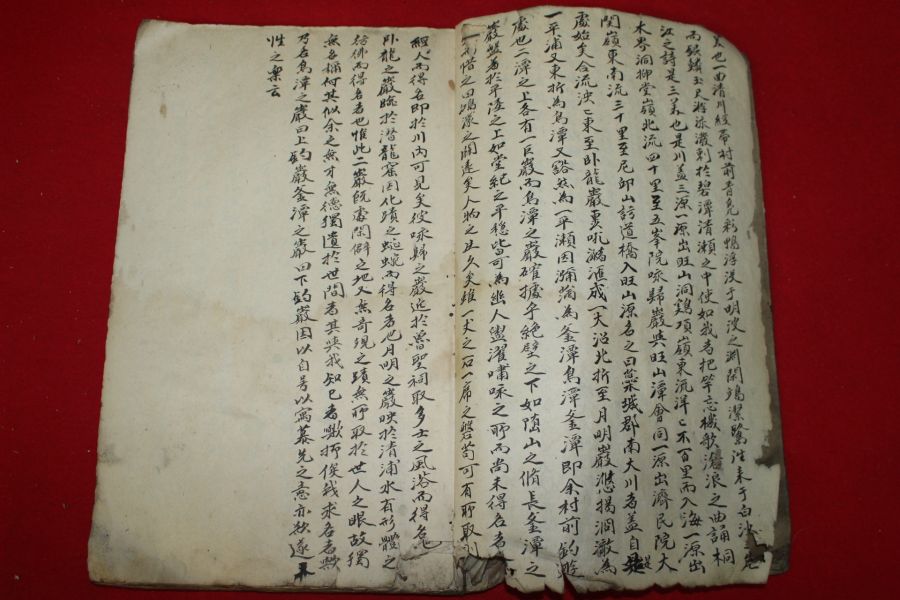 美也一曲清川經帶村前青鳧彩鴨浮沒于明波之淵閑鴻潔鷺往来于白沙
而錦鱗玉尺游泳潑剌於碧潭清瀨之中使如我者把竿忘機歌滄浪之曲誦桐
江之詩是三美也是川盖三源一源出旺山洞鷄項嶺東流洋〻不百里而入海一源出
木界洞抑堂嶺北流四十里至五峯院咏歸巖與旺山潭會同一源出濟民院大
関嶺東南流三十里至尼邱山訪道橋入旺山源名之曰蘂城郡南大川者盖自是
處始矣合流泱〻東至卧龍巖吼瀦滙成一大沼北折至月明巖揭洞澈為
一平浦又東折為烏潭又豁然為一平瀨因瀰滴為釜潭烏潭釜潭即余村前釣遊
處也二潭之上各有一巨巖而烏潭之巖確據乎絶壁之下如山之脩長釜潭之
巖盤著於平陵之上如堂圮之平穩皆可為幽人盥濯嘯咏之所而尚未得名者
而惜之曰鴻濛之闢遠矣人物之生久矣雖一丈之石一席之磐苟可有所取則
經人而得名即於川內可見矣彼咏歸之巖近於魯聖祠取多士之風浴而得名也
卧龍之巖臨於潛龍窟因化蹟之蜿蜿而得名者也月明之巖映於清浦水有形體之
彷彿而得名者也惟此二巖既處閑僻之地又無奇現之蹟無所取於世人之眼故獨
無名稱何其似余之無才無德獨遺於世間者其與我知己者歟抑俟我求名者歟
乃名烏潭之巖曰上釣巖釜潭之巖曰下釣巖因以自号以寓慕先之意亦欲遂
性之樂云